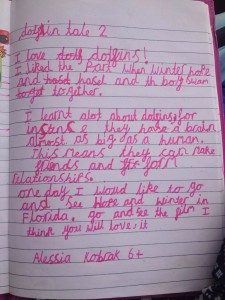 dolfin tale 2
I love dolfins!
I liked the Part when winter hope
and hasel and
to get together.
I learnt alot about dolfins for
instinse they have a brain
almost as big as a human.
This means they can make
friends and for
relationships.
one day I would like to go
and see Hope and winter in
Florida. go and see the film I
think you will love it
Alessia 6+